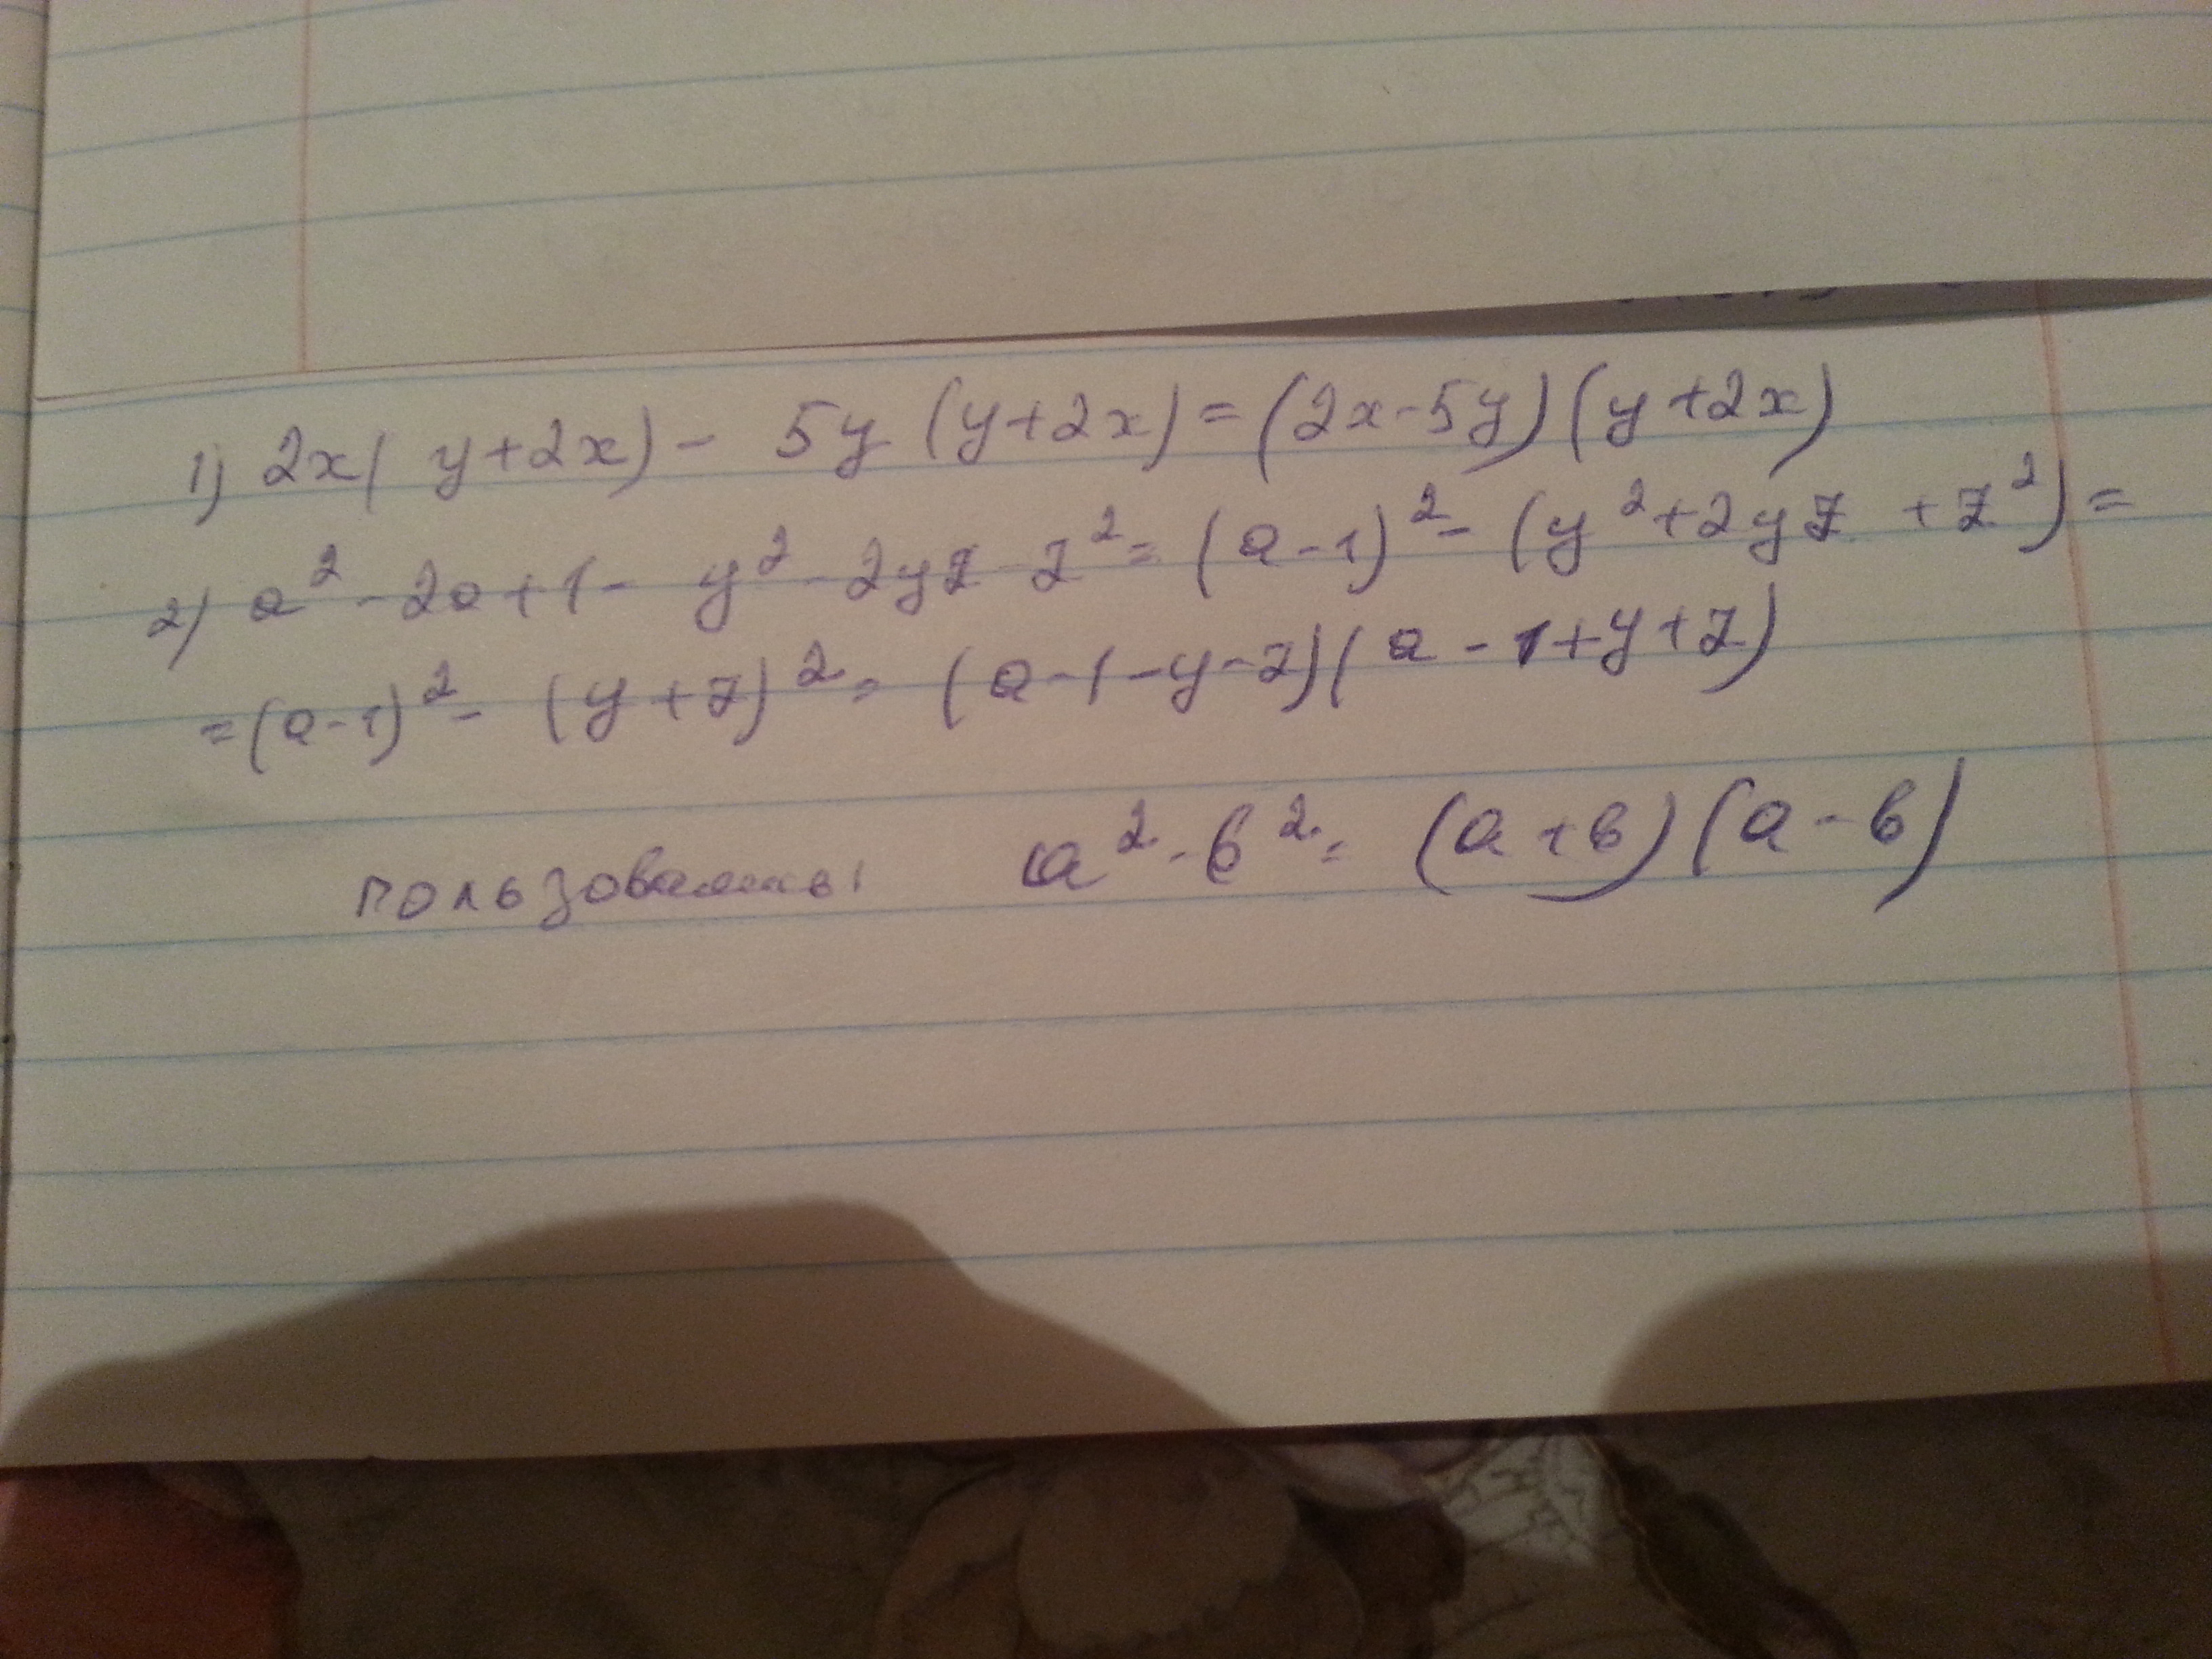 1) 2x( y+2x) - 5y (y+2x) = (2x-5y)(y+2x)
2) a² - 2a + 1 - y² - 2yz - z² = (a-1)² - (y² + 2yz + z²) =
= (a-1)² - (y+z)² = (a-1-y-z)(a-1+y+z)
a² - b² = (a+b)(a-b)